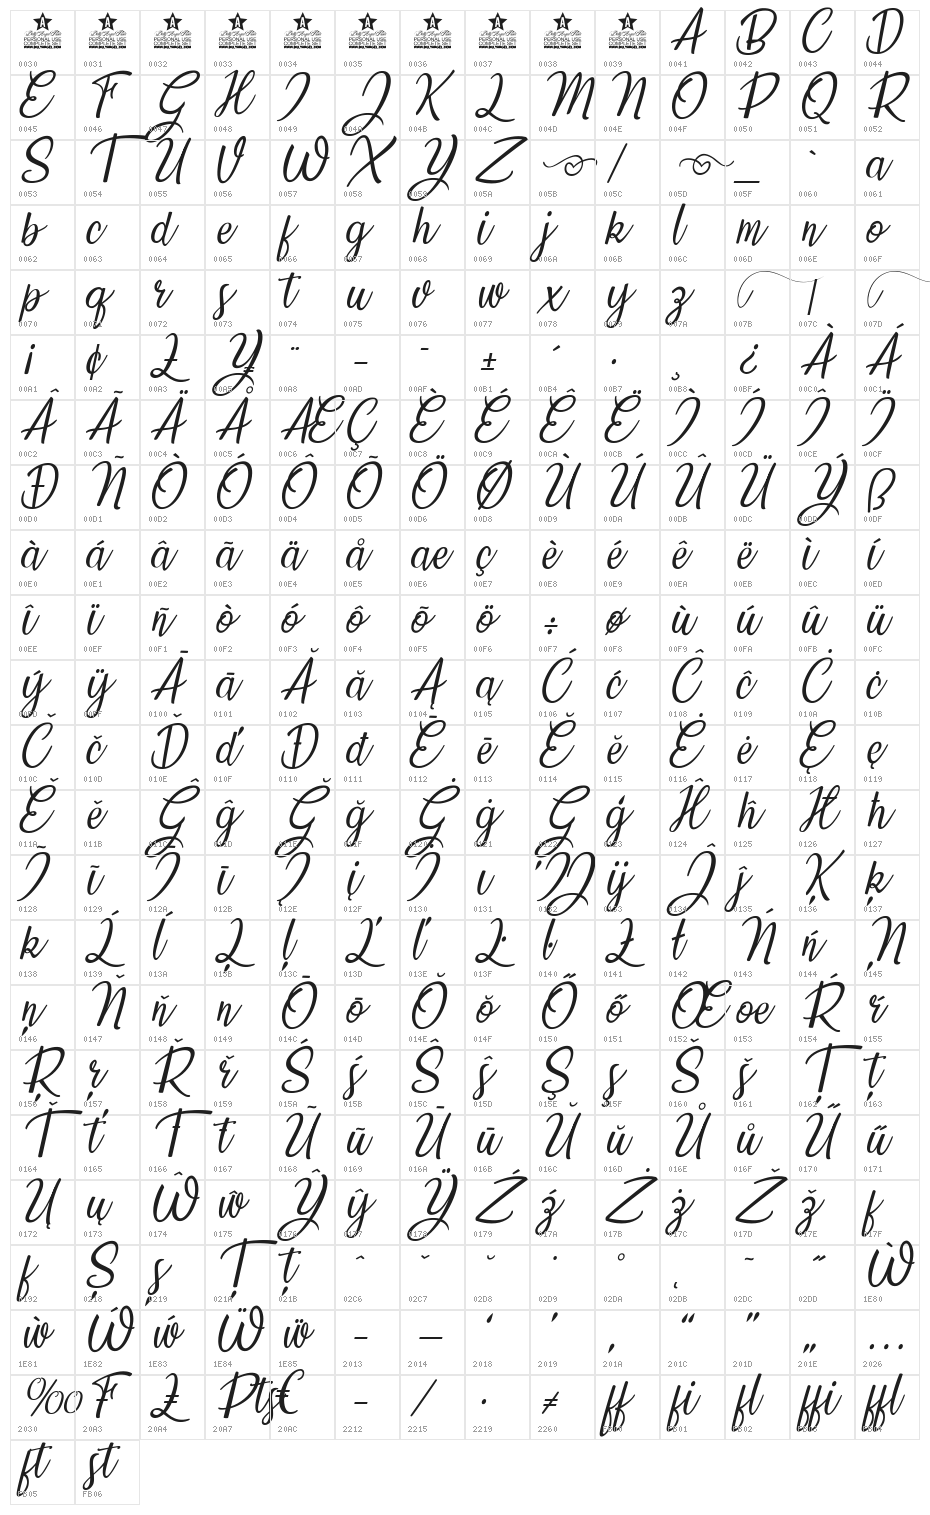 A B C D
0030 0031 0032 0033 0034 0035 0036 0037 0038 0039 0041 0042 0043 0044
E F G H I J K L M N O P Q R
0045 0046 0047 0048 0049 004A 004B 004C 004D 004E 004F 0050 0051 0052
S T U V W X Y Z \ _ ` a
0053 0054 0055 0056 0057 0058 0059 005A 005B 005C 005D 005F 0060 0061
b c d e f g h i j k l m n o
0062 0063 0064 0065 0066 0067 0068 0069 006A 006B 006C 006D 006E 006F
p q r s t u v w x y z |
0070 0071 0072 0073 0074 0075 0076 0077 0078 0079 007A 007B 007C 007D
¡ ¢ £ ¥ ¨ - ¯ ± ´ · ¸ ¿ À Á
00A1 00A2 00A3 00A5 00A8 00AD 00AF 00B1 00B4 00B7 00B8 00BF 00C0 00C1
Â Ã Ä Å Æ Ç È É Ê Ë Ì Í Î Ï
00C2 00C3 00C4 00C5 00C6 00C7 00C8 00C9 00CA 00CB 00CC 00CD 00CE 00CF
Ð Ñ Ò Ó Ô Õ Ö Ø Ù Ú Û Ü Ý ß
00D0 00D1 00D2 00D3 00D4 00D5 00D6 00D8 00D9 00DA 00DB 00DC 00DD 00DF
à á â ã ä å æ ç è é ê ë ì í
00E0 00E1 00E2 00E3 00E4 00E5 00E6 00E7 00E8 00E9 00EA 00EB 00EC 00ED
î ï ñ ò ó ô õ ö ÷ ø ù ú û ü
00EE 00EF 00F1 00F2 00F3 00F4 00F5 00F6 00F7 00F8 00F9 00FA 00FB 00FC
ý ÿ Ā ā Ă ă Ą ą Ć ć Ĉ ĉ Ċ ċ
00FD 00FF 0100 0101 0102 0103 0104 0105 0106 0107 0108 0109 010A 010B
Č č Ď ď Đ đ Ē ē Ĕ ĕ Ė ė Ę ę
010C 010D 010E 010F 0110 0111 0112 0113 0114 0115 0116 0117 0118 0119
Ě ě Ĝ ĝ Ğ ğ Ġ ġ Ģ ģ Ĥ ĥ Ħ ħ
011A 011B 011C 011D 011E 011F 0120 0121 0122 0123 0124 0125 0126 0127
Ĩ ĩ Ī ī Į į İ ı Ĳ ĳ Ĵ ĵ Ķ ķ
0128 0129 012A 012B 012E 012F 0130 0131 0132 0133 0134 0135 0136 0137
ĸ Ĺ ĺ Ļ ļ Ľ ľ Ŀ ŀ Ł ł Ń ń Ņ
0138 0139 013A 013B 013C 013D 013E 013F 0140 0141 0142 0143 0144 0145
ņ Ň ň n Ō ō Ŏ ŏ Ő ő Œ œ Ŕ ŕ
0146 0147 0148 0149 014C 014D 014E 014F 0150 0151 0152 0153 0154 0155
Ŗ ŗ Ř ř Ś ś Ŝ ŝ Ş ş Š š Ţ ţ
0156 0157 0158 0159 015A 015B 015C 015D 015E 015F 0160 0161 0162 0163
Ť ť Ŧ ŧ Ũ ũ Ū ū Ŭ ŭ Ů ů Ű ű
0164 0165 0166 0167 0168 0169 016A 016B 016C 016D 016E 016F 0170 0171
Ų ų Ŵ ŵ Ŷ ŷ Ÿ Ź ź Ż ż Ž ž ſ
0172 0173 0174 0175 0176 0177 0178 0179 017A 017B 017C 017D 017E 017F
ƒ Ș ș Ț ț ˆ ˇ ˘ ˙ ˚ ˛ ˜ ˝ Ẁ
0192 0218 0219 021A 021B 02C6 02C7 02D8 02D9 02DA 02DB 02DC 02DD 1E80
ẁ Ẃ ẃ Ẅ ẅ – — ‘ ’ ‚ “ ” „ …
1E81 1E82 1E83 1E84 1E85 2013 2014 2018 2019 201A 201C 201D 201E 2026
‰ ₣ ₤ ₧ € − ∕ ∙ ≠ ﬀ ﬁ ﬂ ﬃ ﬄ
2030 20A3 20A4 20A7 20AC 2212 2215 2219 2260 FB00 FB01 FB02 FB03 FB04
ﬅ ﬆ
FB05 FB06